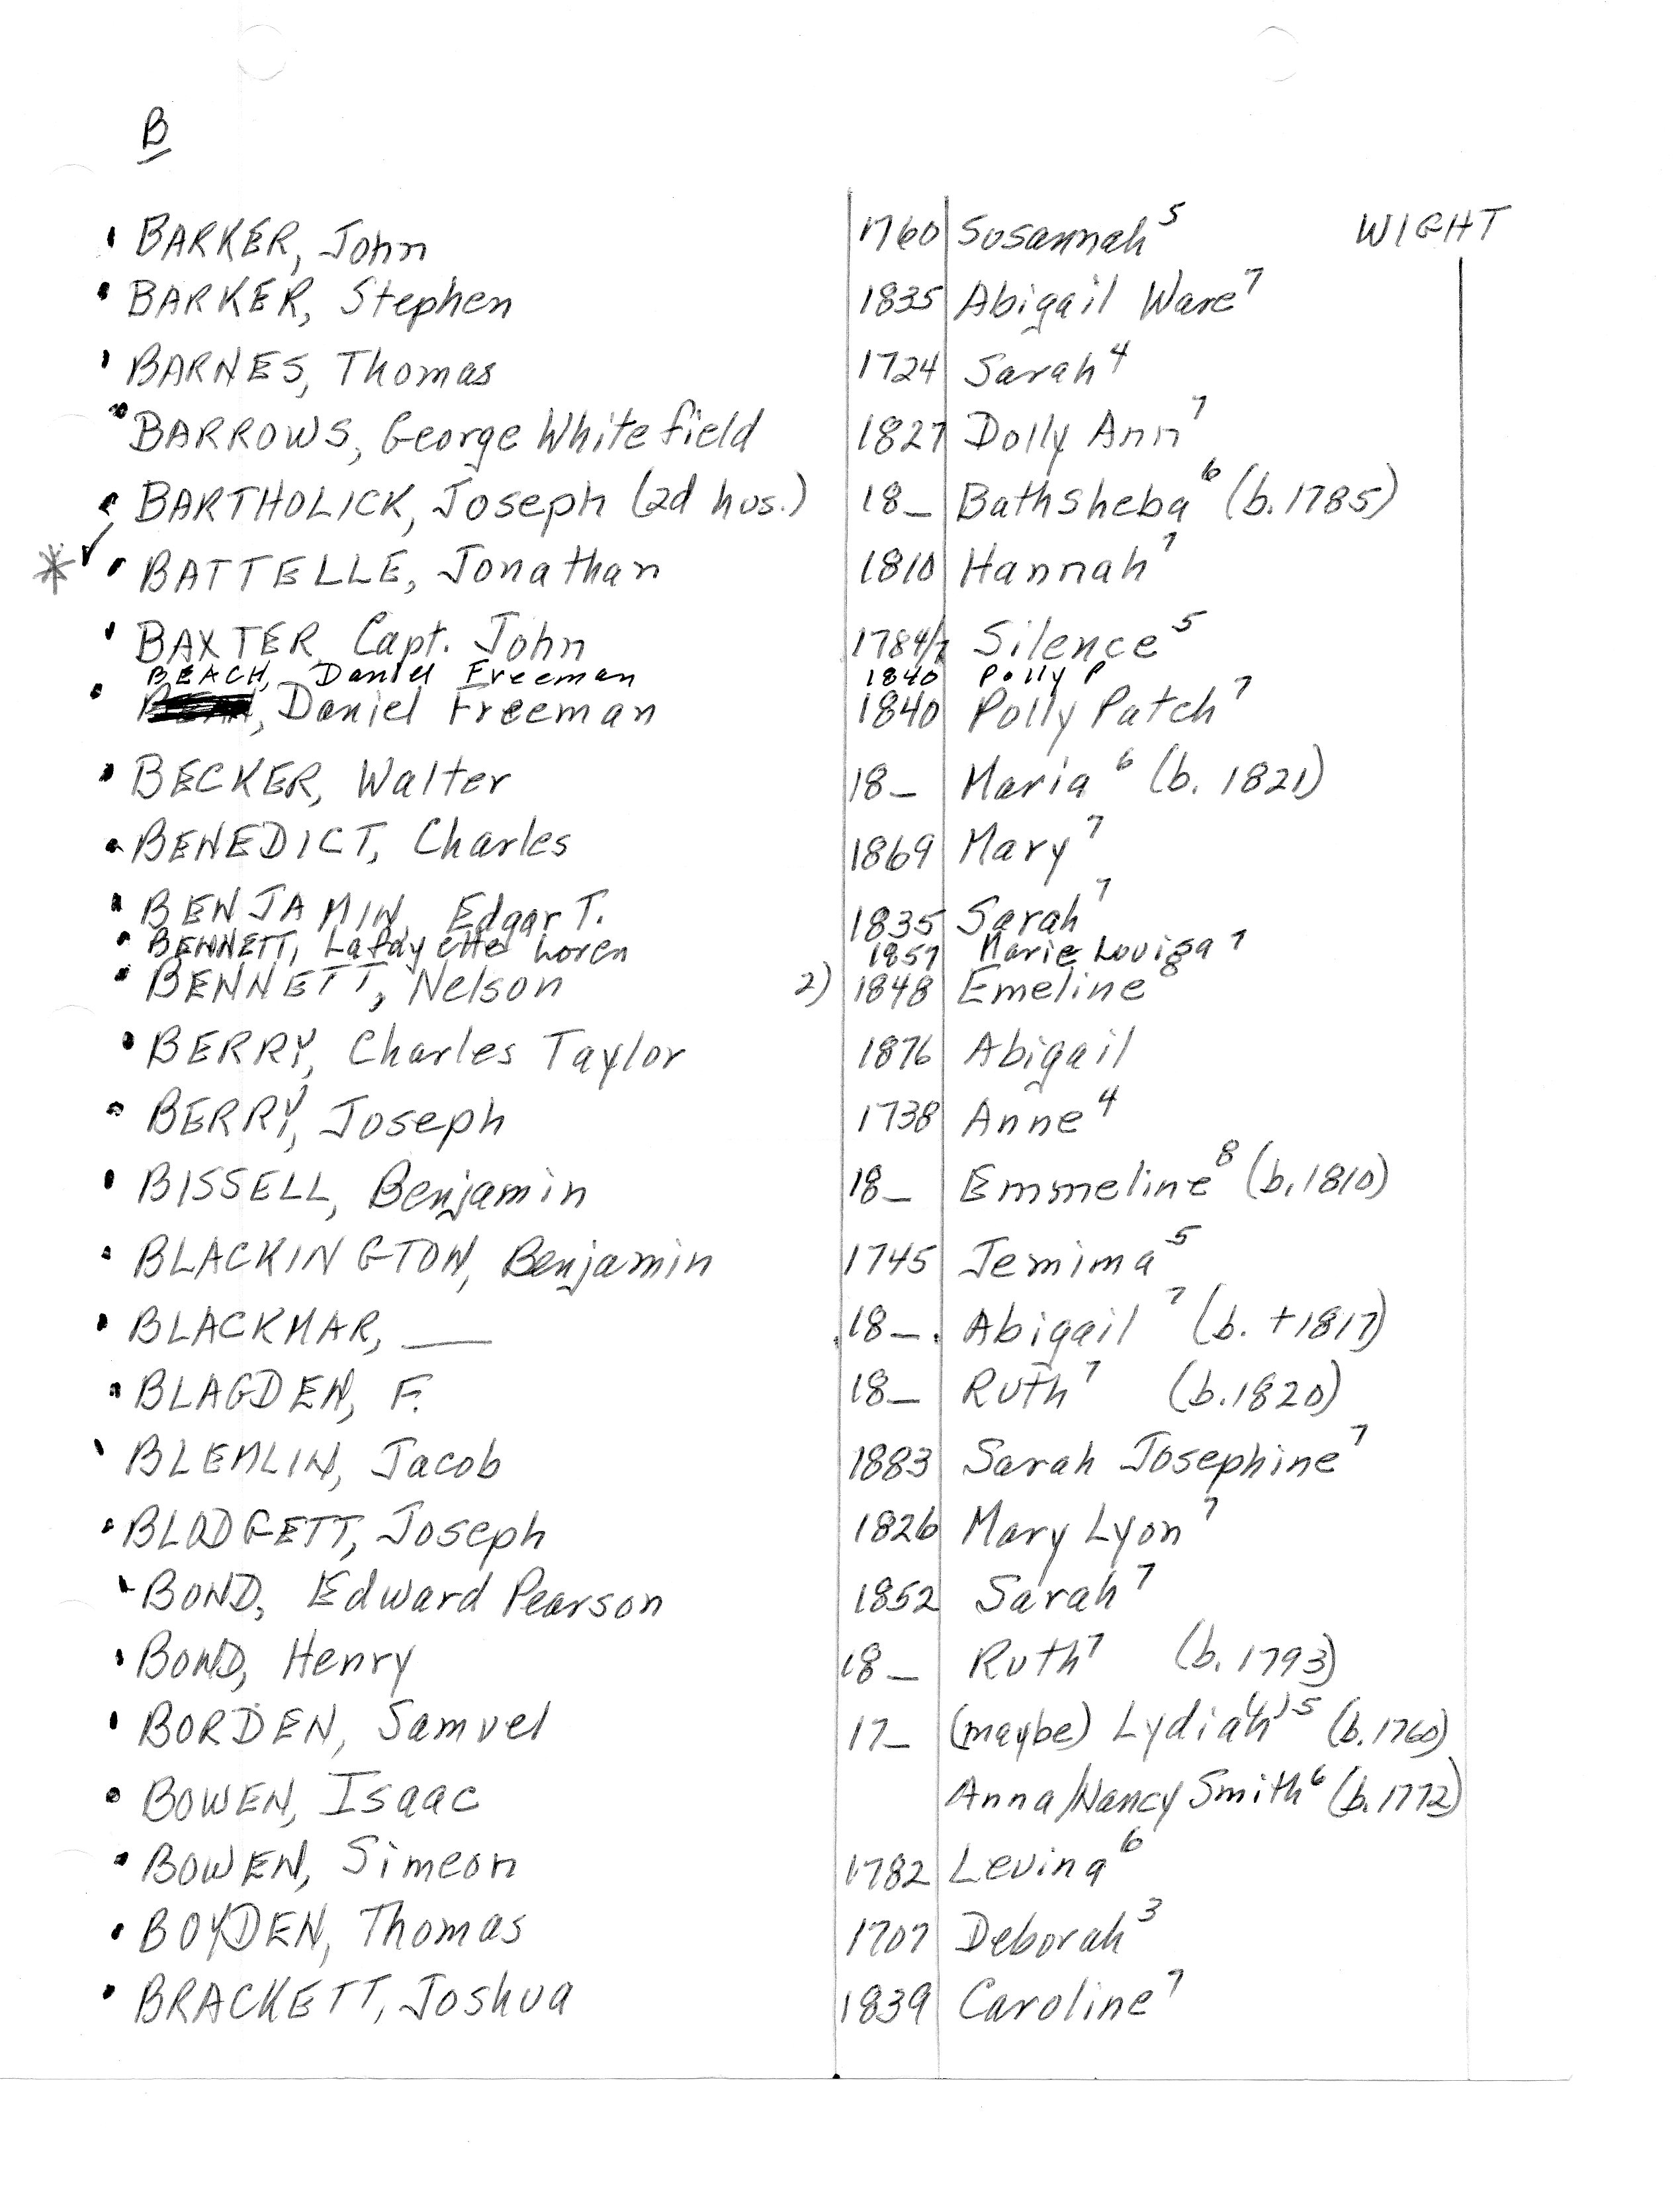 B
BARKER, John 1760 Susannah⁵ WIGHT
BARKER, Stephen 1835 Abigail Ware⁷
BARNES, Thomas 1724 Sarah⁴
BARROWS, George Whitefield 1827 Dolly Ann⁷
BARTHOLICK, Joseph (2d hus.) 18_ Bathsheba⁶ (b. 1785)
* ✓ BATTELLE, Jonathan 1810 Hannah⁷
BAXTER Capt. John 1784/7 Silence⁵
BEACH, Daniel Freeman 1840 Polly P
, Daniel Freeman 1840 Polly Patch⁷
BECKER, Walter 18_ Maria⁶ (b. 1821)
BENEDICT, Charles 1869 Mary⁷
BENJAMIN, Edgar T. 1835 Sarah⁷
BENNETT, Lafayette Loren 1857 Marie Louisa⁷
BENNETT, Nelson 2) 1848 Emeline⁸
BERRY, Charles Taylor 1876 Abigail
BERRY, Joseph 1738 Anne⁴
BISSELL, Benjamin 18_ Emmeline⁸ (b. 1810)
BLACKINGTON, Benjamin 1745 Jemima⁵
BLACKMAR, __ 18_. Abigail⁷ (b. +1817)
BLAGDEN, F. 18_ Ruth⁷ (b. 1820)
BLEMLIN, Jacob 1883 Sarah Josephine⁷
BLODGETT, Joseph 1826 Mary Lyon⁷
BOND, Edward Pearson 1852 Sarah⁷
BOND, Henry 18_ Ruth⁷ (b. 1793)
BORDEN, Samuel 17_ (maybe) Lydiah⁽⁴⁾⁵ (b. 1760)
BOWEN, Isaac Anna/Nancy Smith⁶ (b. 1772)
BOWEN, Simeon 1782 Levina⁶
BOYDEN, Thomas 1707 Deborah³
BRACKETT, Joshua 1839 Caroline⁷